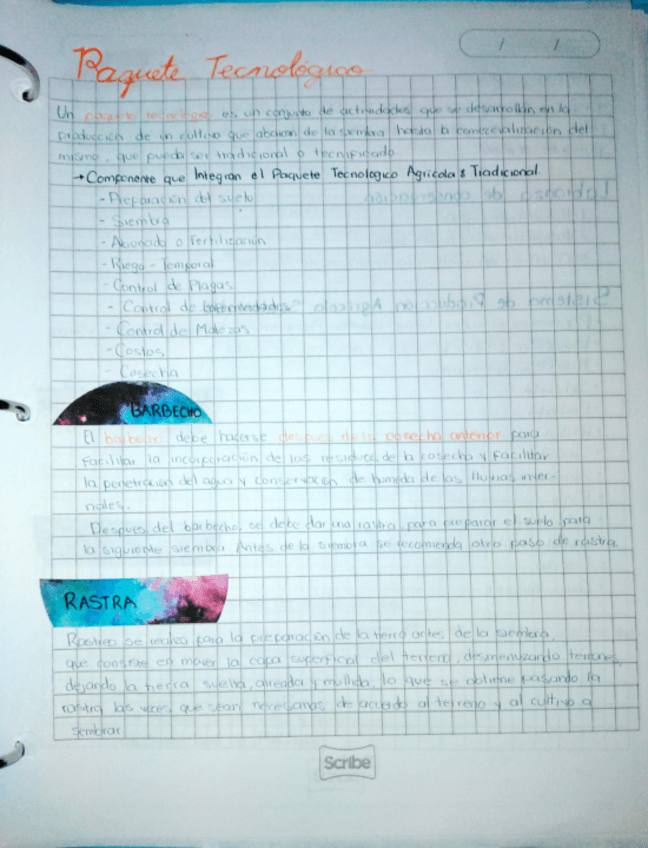 / /
Paquete Tecnológico
Un paquete tecnologico es un conjunto de actividades que se desarrollan en la
produccion de un cultivo que abarcan de la siembra hasta la comercialización del
mismo, que pueda ser tradicional o tecnificado
→ Componente que Integran el Paquete Tecnologico Agricola: Tradicional.
- Preparación del suelo
- Siembra
- Abonado o Fertilización
- Riego - Temporal
- Control de Plagas
- Control de Enfermedades
- Control de Malezas
- Costos
- Cosecha
BARBECHO
El barbecho debe hacerse despues de la cosecha anterior para
facilitar la incorporación de los residuos de la cosecha y facilitar
la penetración del agua y conservación de humeda de las lluvias inver-
nales.
Despues del barbecho, se debe dar una rastra para preparar el suelo para
la siguiente siembra. Antes de la siembra se recomienda otro paso de rastra.
RASTRA
Rastreo se realiza para la preparación de la tierra antes de la siembra,
que consiste en mover la capa superficial del terreno, desmenuzando terrones,
dejando la tierra suelta, aireada y mullida, lo que se obtiene pasando la
rastra las veces que sean necesarias de acuerdo al terreno y al cultivo a
sembrar
Scribe